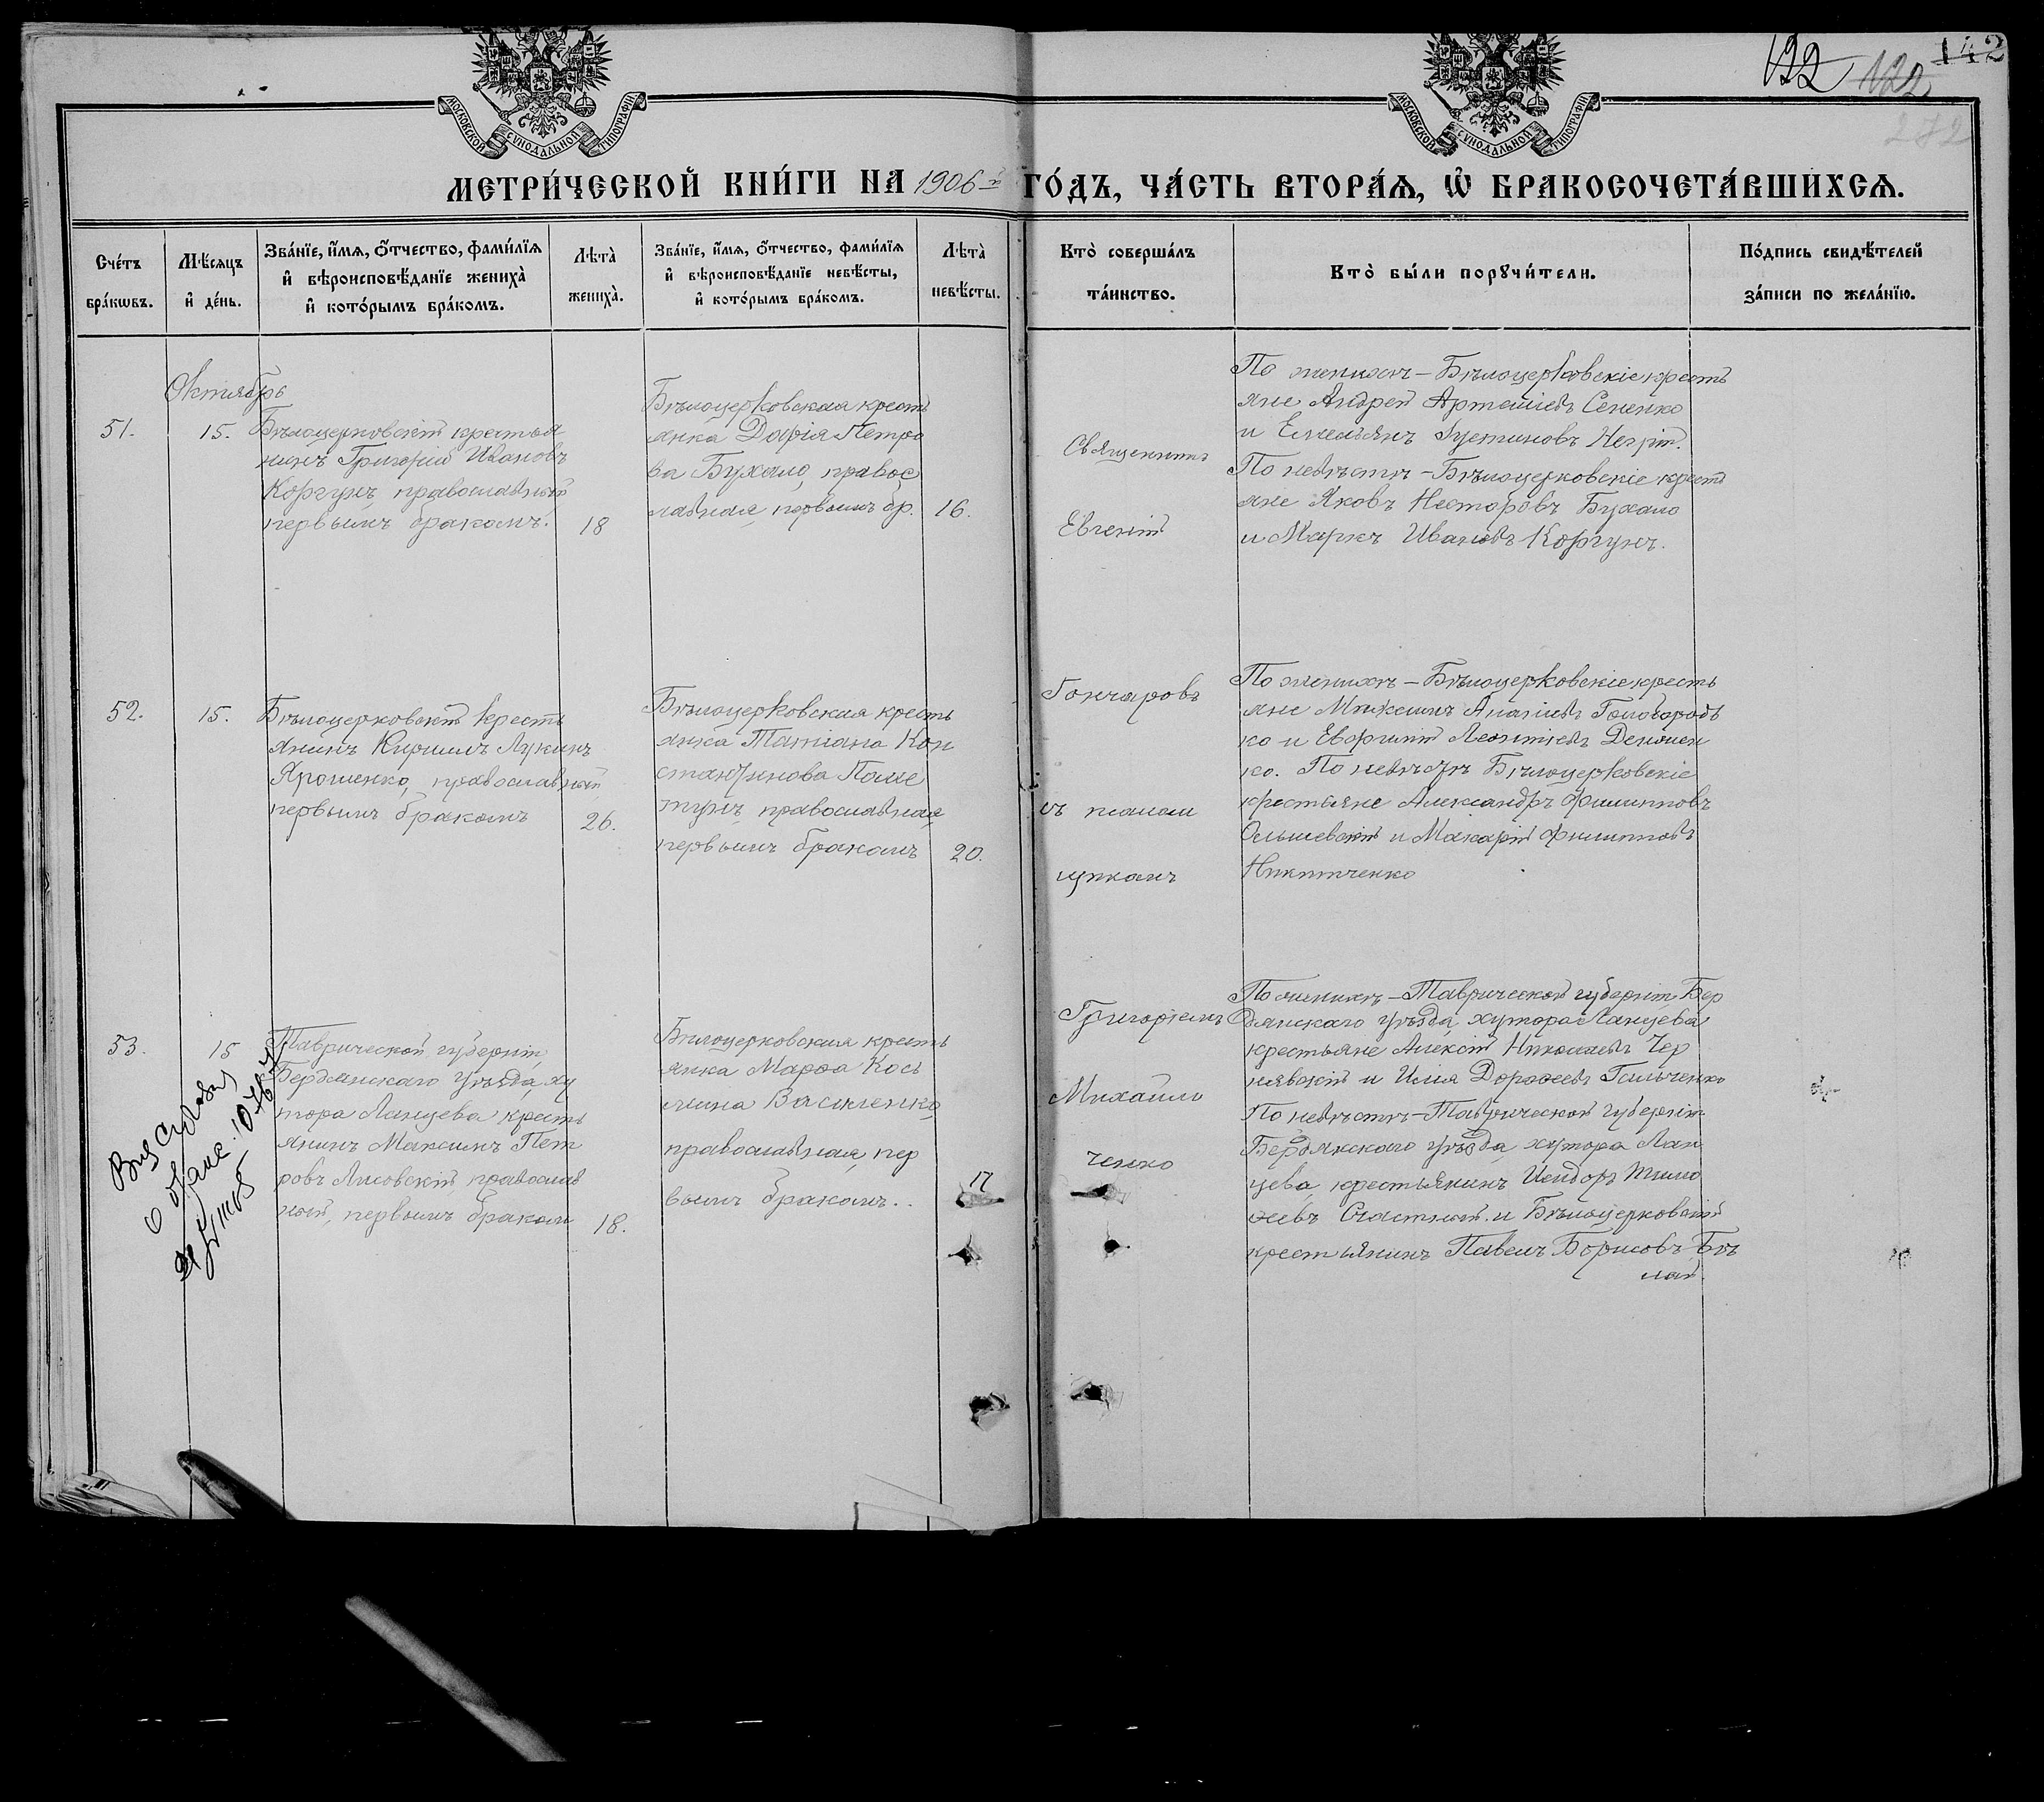 122 122 142
272
МОСКОВСКОЙ СѴНОДАЛЬНОЙ ТИПОГРАФІИ
МОСКОВСКОЙ СѴНОДАЛЬНОЙ ТИПОГРАФІИ
МЕТРИ́ЧЕСКОЙ КНИ́ГИ НА 1906-й ГО́ДЪ, ЧА́СТЬ ВТОРА́Ѧ, Ѡ҆ БРАКОСОЧЕТА́ВШИХСѦ.
Сче́тъ
бра́кѡвъ.
Мѣ́сѧцъ
и҆ де́нь.
Зва́нїе, и҆́мѧ, ѻ҆́тчество, фами́лїѧ
и҆ вѣроисповѣ́данїе жениха̀
и҆ кото́рымъ бра́комъ.
Лѣта̀
жениха̀.
Зва́нїе, и҆́мѧ, ѻ҆́тчество, фами́лїѧ
и҆ вѣроисповѣ́данїе невѣ́сты,
и҆ кото́рымъ бра́комъ.
Лѣта̀
невѣ́сты.
Кто̀ соверша́лъ
та́инство.
Кто̀ бы́ли порꙋчи́тели.
По́дпись свидѣ́телей
за́писи по жела́нїю.
Октябрь
51.
15.
Бѣлоцерковскій крестья
нинъ Григорій Ивановъ
Коргунъ, православный,
первымъ бракомъ.
18
Бѣлоцерковская кресть
янка Дарія Петро
ва Бухало, правос
лавная, первымъ бр.
16.
Священникъ
Евгеній
По женихѣ – Бѣлоцерковскіе кресть
яне Андрей Артеміевъ Сененко
и Емельянъ Іустиновъ Негрій.
По невѣстѣ – Бѣлоцерковскіе кресть
яне Яковъ Несторовъ Бухало
и Маркъ Ивановъ Коргунъ.
52.
15.
Бѣлоцерковскій кресть
янинъ Кириллъ Лукинъ
Ярошенко, православный,
первымъ бракомъ
26.
Бѣлоцерковская кресть
янка Татіана Кон
стантинова Поле
тунъ, православная,
первымъ бракомъ
20.
Гончаровъ
съ псалом
щикомъ
По женихѣ – Бѣлоцерковскіе кресть
яне Ананіевъ Головородь
ко и Леонтіевъ
ко. По невѣстѣ Бѣлоцерковскіе
крестьяне Александръ Филипповъ
Ольшевскій и Макарій Филипповъ
Никитченко
53.
15
Таврической губерніи,
Бердянскаго уѣзда, ху
тора Ланцева кресть
янинъ Максимъ Пет
ровъ Лисовскій, православ
ный, первымъ бракомъ
18.
Бѣлоцерковская кресть
янка Марѳа Кось
мина Василенко
православная, пер
вымъ бракомъ.
17
Григоріемъ
Михайли
ченко
По женихѣ – Таврической губерніи, Бер
дянскаго уѣзда, хутора Ланцева
крестьяне Алексій Николаевъ Чер
нявскій и Илія Дороѳеевъ Гильченко
По невѣстѣ – Таврической губерніи
Бердянскаго уѣзда, хутора Лан
цева, крестьянинъ Исидоръ Тимо
ѳеевъ Счастный и Бѣлоцерковскій
крестьянинъ Павелъ Борисовъ Бѣ
лай.